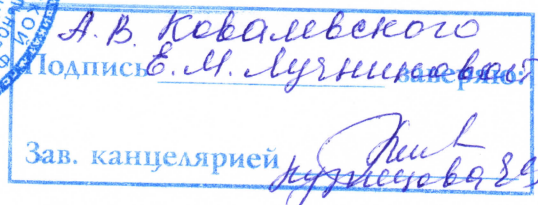 А. В. Ковалевского
Подпись Е. М. Лучниковой заверяю:
Зав. канцелярией